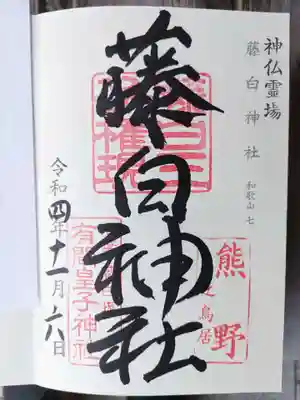 神仏霊場
藤白神社 和歌山 七
藤白神社
熊野
之鳥居
有間皇子神社
令和四年十一月六日